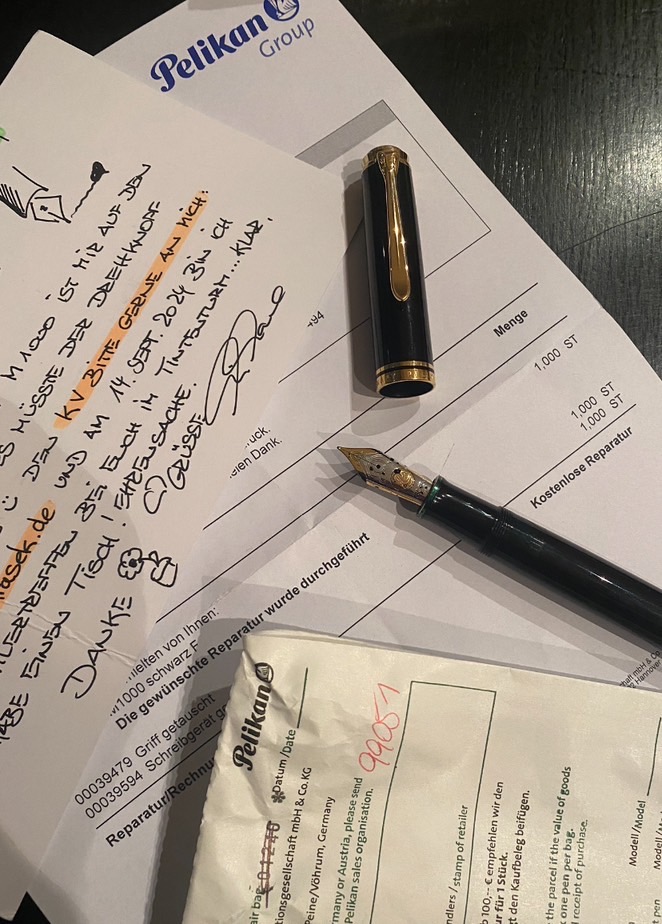 Pelikan
Group
M1000 IST MIR AUF DEN
MÜSSTE DER DREHKNOPF
DEN KV BITTE GERNE AN MICH:
asek.de UND AM 14. SEPT. 2024 BIN ICH
BEI EUCH IM TINTENTURM... KLAR.
EINEN TISCH! EHRENSACHE.
DANKE GRÜSSE
Menge
1,000 ST
1,000 ST
1,000 ST
Kostenlose Reparatur
Dank.
von Ihnen:
M1000 schwarz F
Die gewünschte Reparatur wurde durchgeführt
00039479 Griff getauscht
00039594 Schreibgerät
Reparatur/Rechnu
Pelikan
*Datum/Date
99051
ionsgesellschaft mbH & Co.KG
Peine/Vöhrum, Germany
many or Austria, please send
Pelikan sales organisation.
dlers / stamp of retailer
100,- € empfehlen wir den
ur für 1 Stück.
gt den Kaufbeleg beifügen.
the parcel if the value of goods
one pen per bag.
receipt of purchase.
Modell/Model